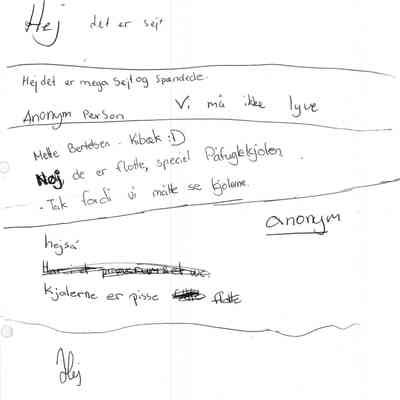 Hej det er sejt
Hej det er mega sejt og spændede.
Anonym Person Vi må ikke lyve
Mette Bertelsen - Kibæk :D
Nøj, de er flotte, speciel Påfuglekjolen.
- Tak fordi vi måtte se kjolerne.
anonym
hejsa
Kjolerne er pisse flotte
Hej